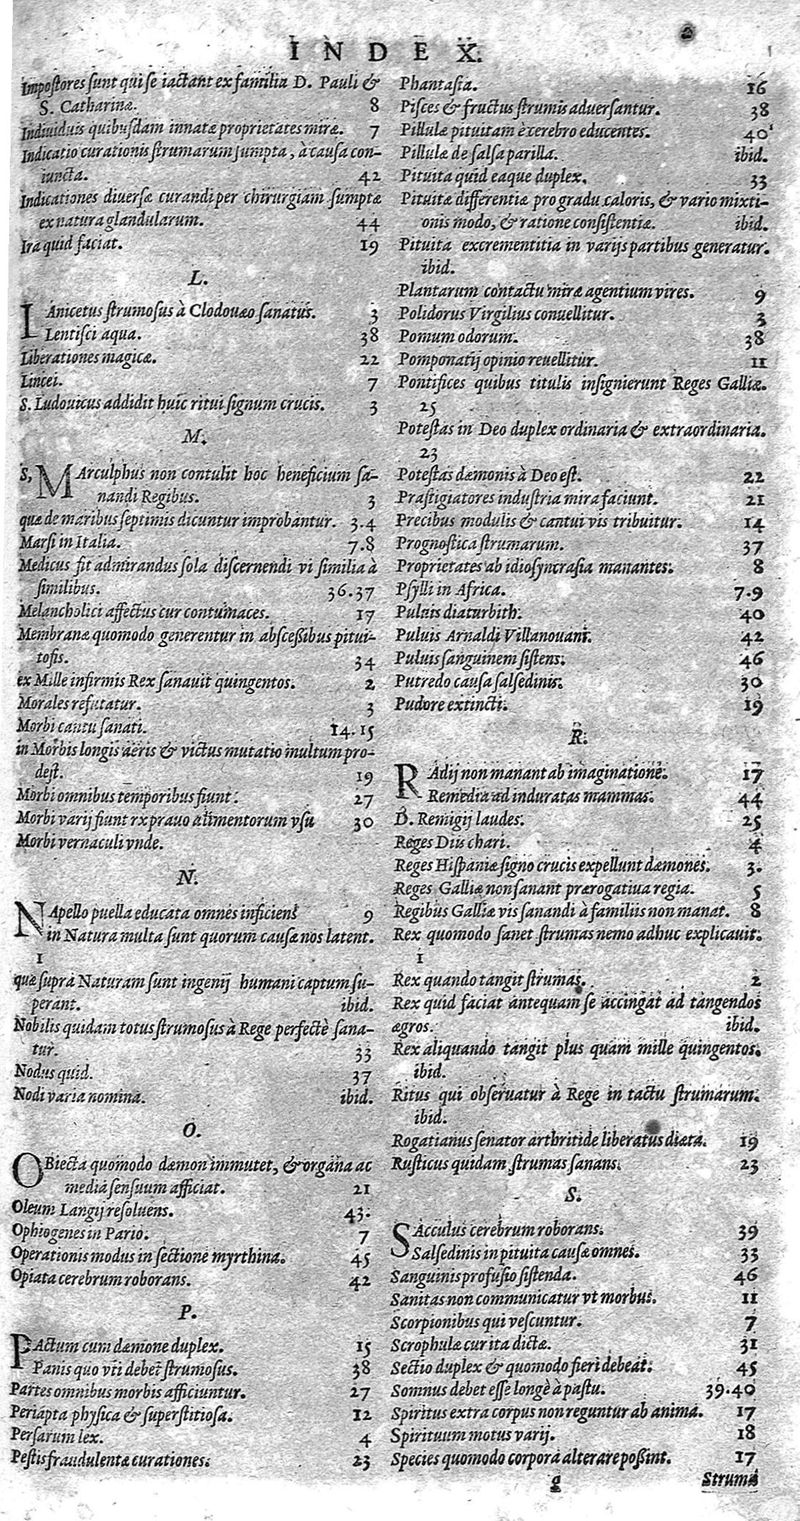 INDEX.
Impostores sunt qui se iactant ex familia D. Pauli &
S. Catharinæ. 8
Indiuiduis quibusdam innatæ proprietates miræ. 7
Indicatio curationis strumarum sumpta, à causa con-
iuncta. 42
Indicationes diuersæ curandi per chirurgiam sumptæ
ex natura glandularum. 44
Ira quid faciat. 19
L.
LAnicetus strumosus à Clodouæo sanatus. 3
Lentisci aqua. 38
Liberationes magicæ. 22
Lincei. 7
S. Ludouicus addidit huic ritui signum crucis. 3
M.
S. MArculphus non contulit hoc beneficium sa-
nandi Regibus. 3
quæ de maribus septimis dicuntur improbantur. 3.4
Marsi in Italia. 7.8
Medicus fit admirandus sola discernendi vi similia à
similibus. 36.37
Melancholici affectus cur contumaces. 17
Membranæ quomodo generentur in abscessibus pitui-
tosis. 34
ex Mille infirmis Rex sanauit quingentos. 2
Morales refutatur. 3
Morbi cantu sanati. 14.15
in Morbis longis aëris & victus mutatio multum pro-
dest. 19
Morbi omnibus temporibus fiunt. 27
Morbi varij fiunt rx prauo alimentorum vsu 30
Morbi vernaculi vnde.
N.
NApello puella educata omnes inficiens 9
in Natura multa sunt quorum causæ nos latent.
1
quæ supra Naturam sunt ingenij humani captum su-
perant. ibid.
Nobilis quidam totus strumosus à Rege perfectè sana-
tur. 33
Nodus quid. 37
Nodi varia nomina. ibid.
O.
OBiecta quomodo dæmon immutet, & organa ac
media sensuum afficiat. 21
Oleum Langij resoluens. 43.
Ophiogenes in Pario. 7
Operationis modus in sectione myrthina. 45
Opiata cerebrum roborans. 42
P.
PActum cum dæmone duplex. 15
Panis quo vti debet strumosus. 38
Partes omnibus morbis afficiuntur. 27
Periapta physica & superstitiosa. 12
Persarum lex. 4
Pestis fraudulentæ curationes. 23
Phantasia. 16
Pisces & fructus strumis aduersantur. 38
Pillulæ pituitam è cerebro educentes. 40
Pillulæ de salsa parilla. ibid.
Pituita quid eaque duplex. 33
Pituitæ differentiæ pro gradu caloris, & vario mixti-
onis modo, & ratione consistentiæ. ibid.
Pituita excrementitia in varijs partibus generatur.
ibid.
Plantarum contactu miræ agentium vires. 9
Polidorus Virgilius conuellitur. 3
Pomum odorum. 38
Pomponatij opinio reuellitur. 11
Pontifices quibus titulis insignierunt Reges Galliæ.
25
Potestas in Deo duplex ordinaria & extraordinaria.
23
Potestas dæmonis à Deo est. 22
Præstigiatores industria mira faciunt. 21
Precibus modulis & cantui vis tribuitur. 14
Prognostica strumarum. 37
Proprietates ab idiosyncrasia manantes. 8
Psylli in Africa. 7.9
Puluis diaturbith. 40
Puluis Arnaldi Villanouani. 42
Puluis sanguinem sistens. 46
Putredo causa salsedinis. 30
Pudore extincti. 19
R.
RAdij non manant ab imaginatione. 17
Remedia ad induratas mammas. 44
D. Remigij laudes. 25
Reges Diis chari. 4
Reges Hispaniæ signo crucis expellunt dæmones. 3.
Reges Galliæ non sanant prærogatiua regia. 5
Regibus Galliæ vis sanandi à familiis non manat. 8
Rex quomodo sanet strumas nemo adhuc explicauit.
1
Rex quando tangit strumas. 2
Rex quid faciat antequam se accingat ad tangendos
ægros. ibid.
Rex aliquando tangit plus quam mille quingentos.
ibid.
Ritus qui obseruatur à Rege in tactu strumarum.
ibid.
Rogatianus senator arthritide liberatus diæta. 19
Rusticus quidam strumas sanans. 23
S.
SAcculus cerebrum roborans. 39
Salsedinis in pituita causæ omnes. 33
Sanguinis profusio sistenda. 46
Sanitas non communicatur vt morbus. 11
Scorpionibus qui vescuntur. 7
Scrophulæ cur ita dictæ. 31
Sectio duplex & quomodo fieri debeat. 45
Somnus debet esse longè à pastu. 39.40
Spiritus extra corpus non reguntur ab anima. 17
Spirituum motus varij. 18
Species quomodo corpora alterare possint. 17
g Strumæ